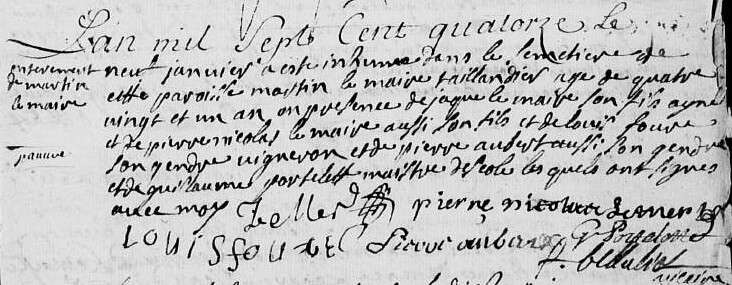 Lan mil Sept Cent quatorze Le
enterement
de martin
le maire
pauvre
neuf janvier a esté inhumé dans le Cemetiere de
cette paroisse martin le maire taillandier age de quatre
vingt et un an en presence de jaque le maire son fils ayné
et de pierre nicolas le maire aussi son fils et de Louis foure
son gendre vigneron et de pierre aubert aussi son gendre
et de guillaume portelette maistre descole les quels ont signes
avec moy pierre nicolas
LOUIS fourE pierre aubert G Portelette